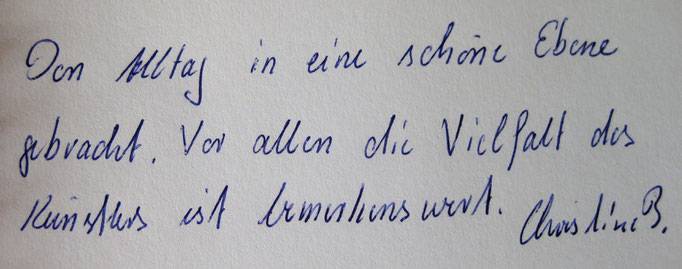 Den Alltag in eine schöne Ebene
gebracht. Vor allen die Vielfalt des
Künstlers ist bemerkenswert. Christine B.